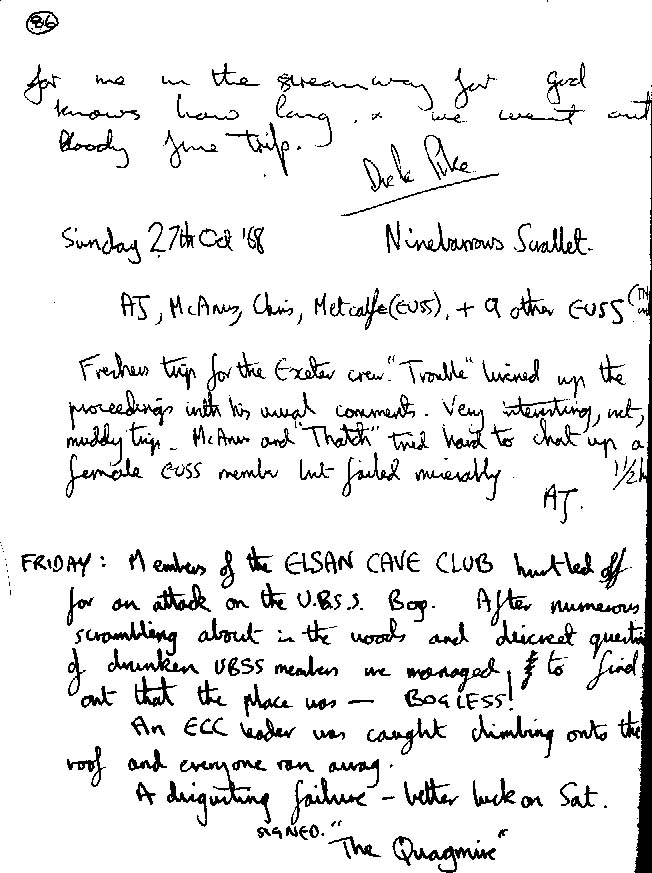 86
for me in the streamway for god
knows how long. & we went out
bloody fine trip.
Dick Pike
Sunday 27th Oct '68 Ninebarrows Swallet.
AJ, McAnus, Chris, Metcalfe (EUSS), + 9 other EUSS
Freshers trip for the Exeter crew. "Trouble" livened up the
proceedings with his usual comments. Very interesting, wet,
muddy trip. McAnus and "Thatch" tried hard to chat up a
female EUSS member but failed miserably. 1 1/2 h
AJ.
FRIDAY: Members of the ELSAN CAVE CLUB hurtled off
for an attack on the U.B.S.S. Bog. After numerous
scrambling about in the woods and discreet questi
of drunken UBSS members we managed to find
out that the place was — BOGLESS!
An ECC leader was caught climbing onto the
roof and everyone ran away.
A disgusting failure – better luck on Sat.
SIGNED. "The Quagmire"